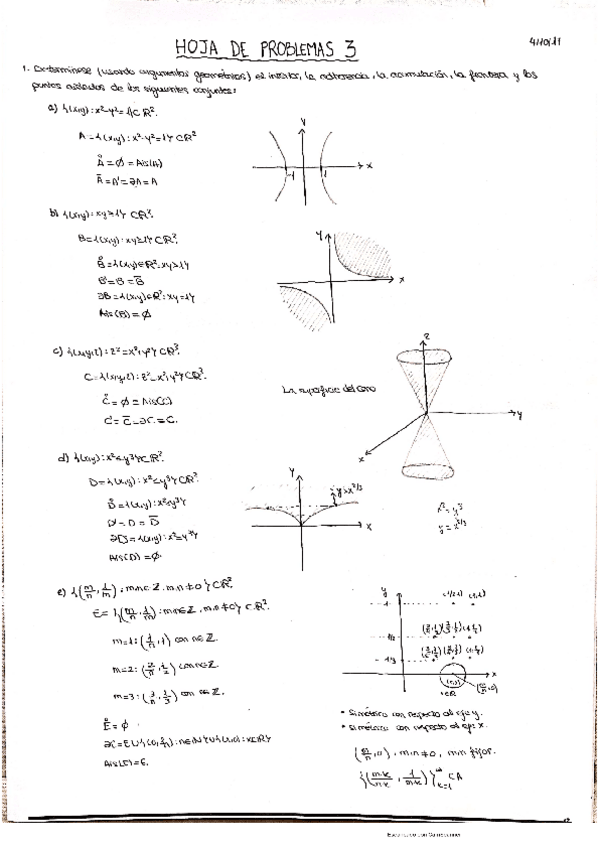 HOJA DE PROBLEMAS 3
4/10/11
1. Determínese (usando argumentos geométricos) el interior, la adherencia, la acumulación, la frontera y los
puntos aislados de los siguientes conjuntos:
a) {(x,y): x²-y²=1} ⊂ ℝ².
A={(x,y): x²-y²=1} ⊂ ℝ²
Å = ∅ = Ais(A)
Ā = A' = ∂A = A
Y
X
-1
1
b) {(x,y): xy≥1} ⊂ ℝ².
B={(x,y): xy≥1} ⊂ ℝ².
B̊={(x,y)∈ℝ²: xy>1}
B' = B = B̄
∂B={(x,y)∈ℝ²: xy=1}
Ais(B) = ∅
Y
X
c) {(x,y,z): z²=x²+y²} ⊂ ℝ³.
C={(x,y,z): z²=x²+y²} ⊂ ℝ³.
C̊ = ∅ = Ais(C)
C' = C̄ = ∂C = C.
La superficie del cono
z
y
x
d) {(x,y): x²≤y³} ⊂ ℝ².
D={(x,y): x²≤y³} ⊂ ℝ².
D̊={(x,y): x²<y³}
D' = D = D̄
∂D={(x,y): x²=y³}
Ais(D) = ∅.
Y
X
x²=y³
y=x^{2/3}
e) {(m/n, 1/m): m,n∈ℤ, m.n≠0} ⊂ ℝ².
E={(m/n, 1/m): m,n∈ℤ, m.n≠0} ⊂ ℝ².
m=1: (1/n, 1) con n∈ℤ.
m=2: (2/n, 1/2) con n∈ℤ.
m=3: (3/n, 1/3) con n∈ℤ.
E̊ = ∅
Ais(E) = E.
y
x
1
1/2
1/3
• Simétrico con respecto al eje y.
• Simétrico con respecto al eje x.
(m/n, 0), m.n≠0, m,n fijos.
{(mk/nk, 1/mk)}_{k=1}^∞ ⊂ A
Escaneado con CamScanner